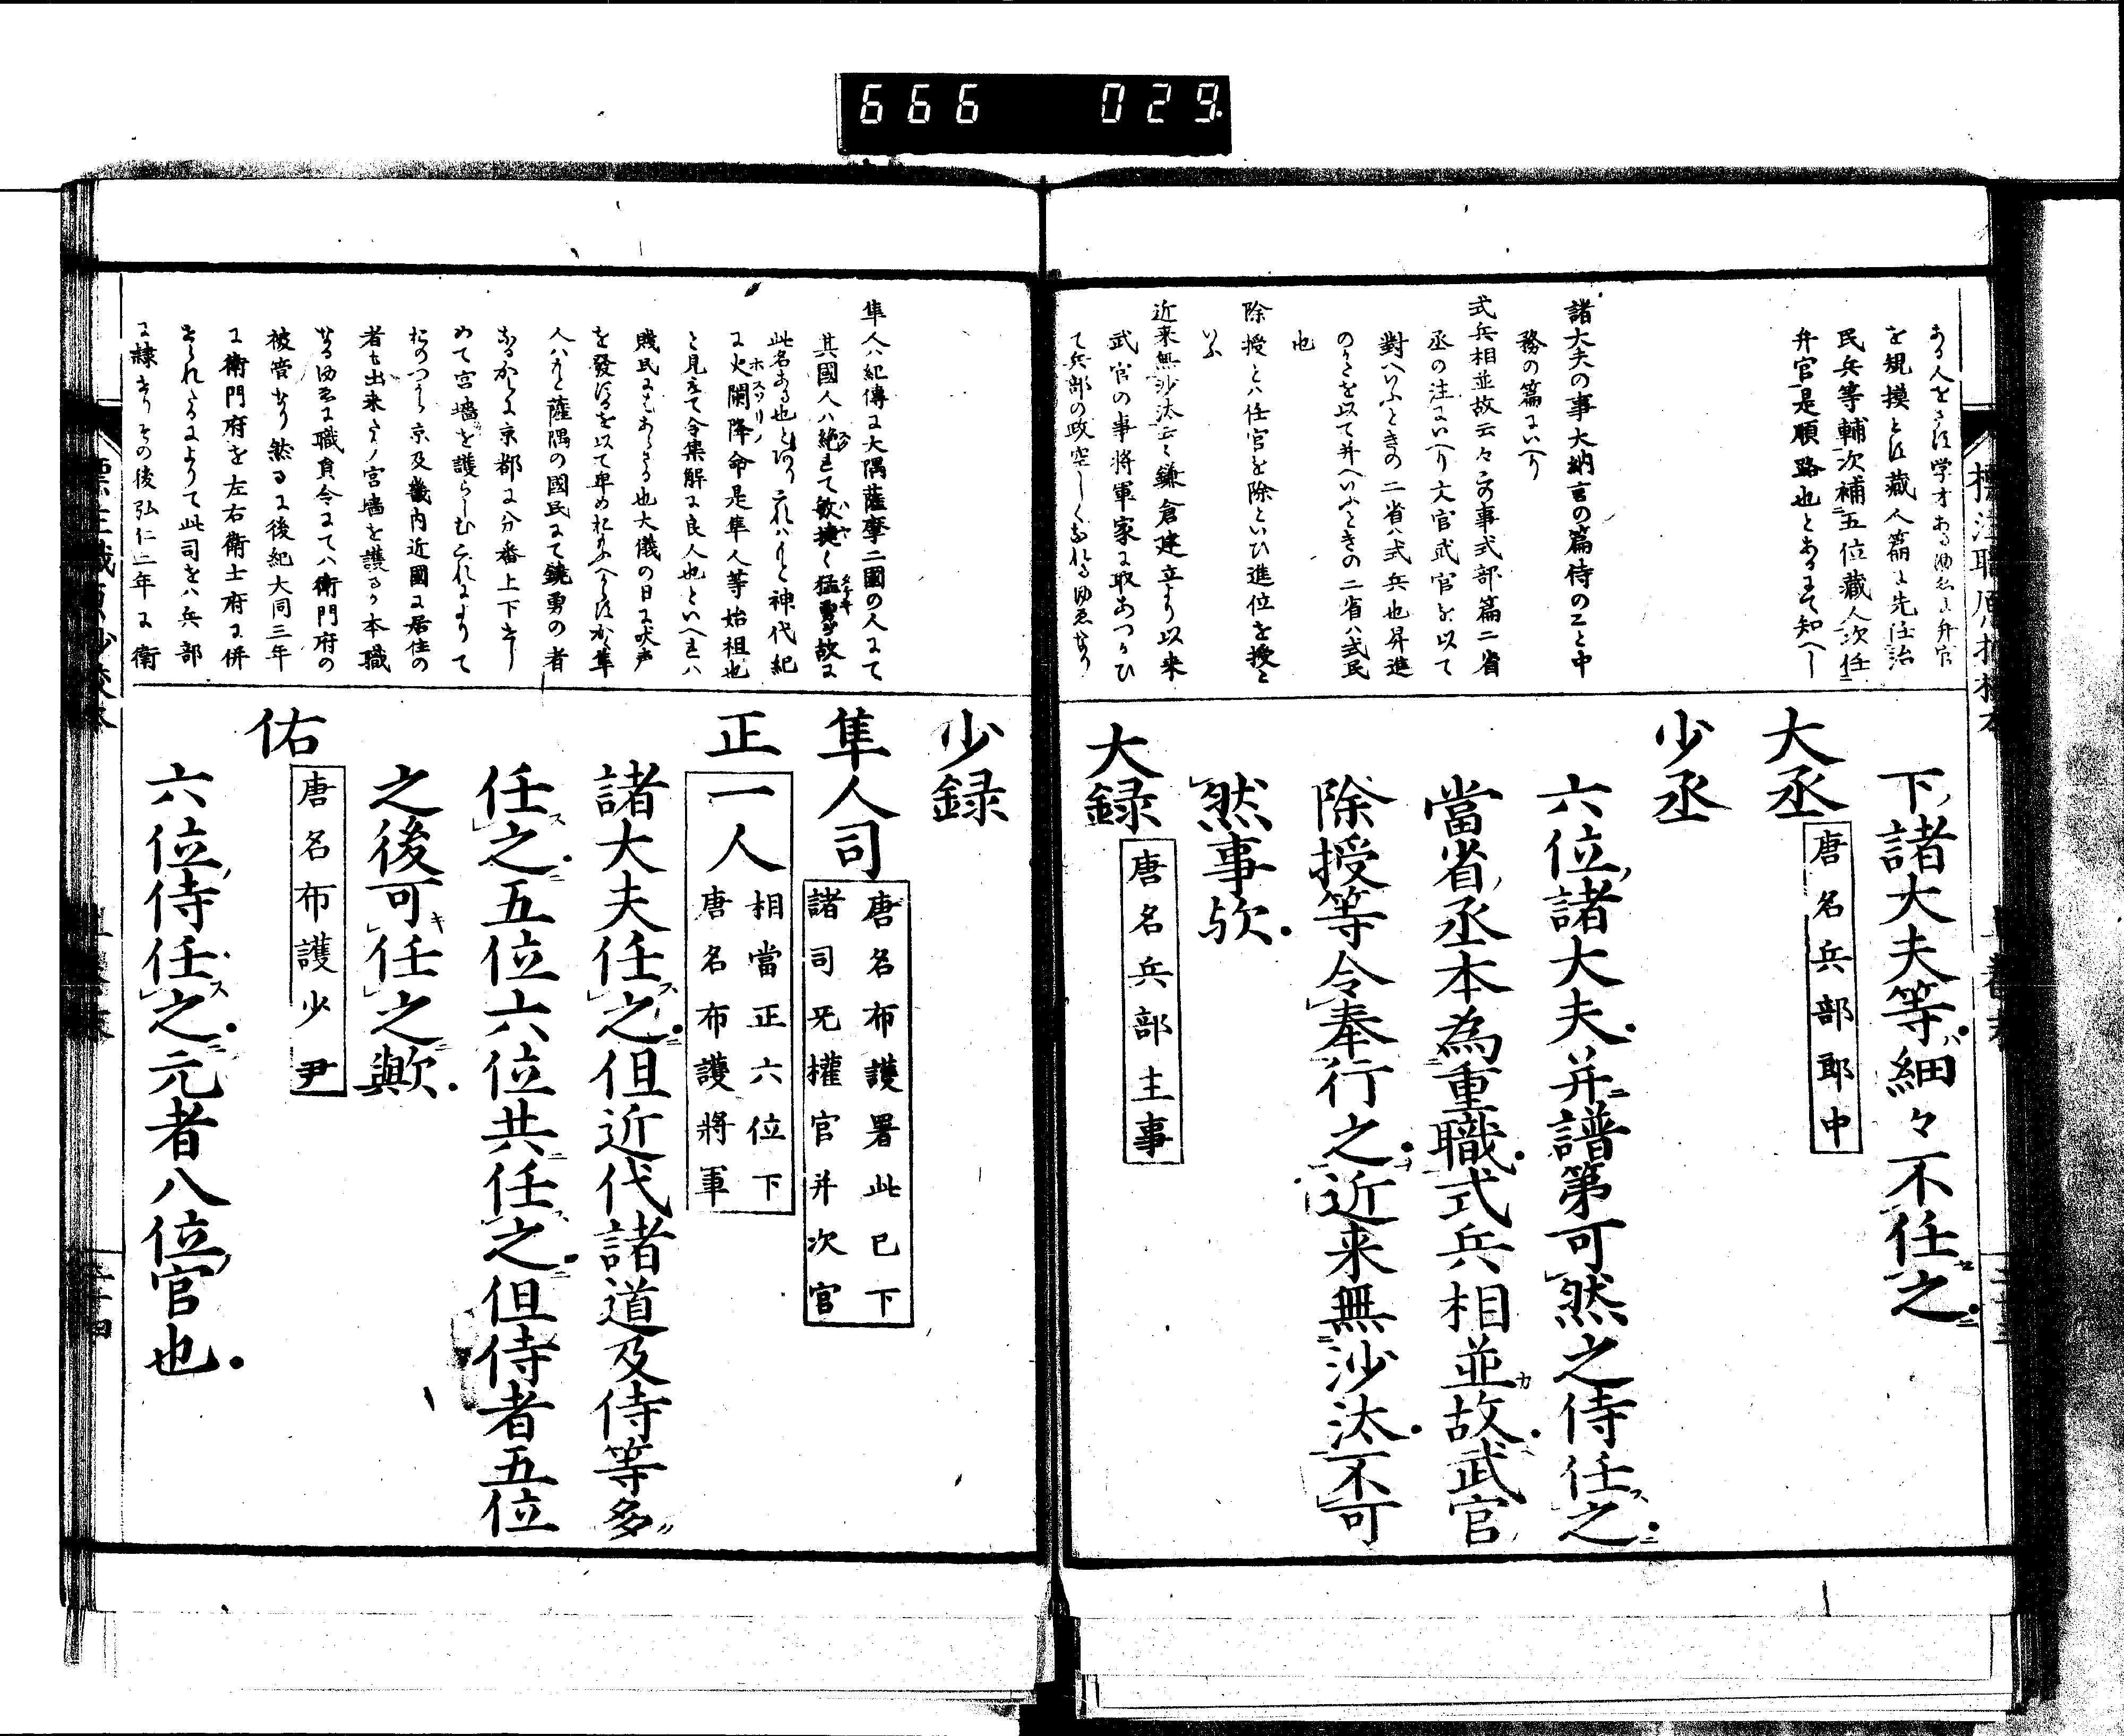 666 029
ある人をさは学才ある故に弁官
を規摸とは蔵人篇に先任治
民兵等輔次補五位蔵人次任
弁官是順路也とあるにて知へし
諸大夫の事大納言の篇侍のこと中
務の篇にいへり
式兵相並故云々の事式部篇二省
丞の注にいへり文官武官を以て
對へいふときの二省ハ式兵也昇進
のかたを以て并へいふときの二省ハ式民
也
除授とハ任官を除といひ進位を授と
いふ
近来無沙汰云々鎌倉建立より以来
武官の事将軍家に取あつかひ
て兵部の政空しくなれる故なり
下諸大夫等ハ細々不任之
大丞 唐名兵部郎中
少丞
六位諸大夫并譜第可然之侍任之
當省丞本為重職式兵相並故武官
除授等令奉行之近来無沙汰不可
然事欤
大録 唐名兵部主事
隼人ハ紀傳に大隅薩摩二國の人にて
其國人ハ絶れて敏捷く猛勇き故に
此名ある也とあり これハもと神代紀
に火闌降命是隼人等始祖也
と見えて令集解に良人也といへれハ
賎民にもあらさる也大儀の日に吠声
を發するを以て卑め
人ハもと薩隅の國民にて鋭勇の者
なるからに京都に分番上下せし
めて宮墻を護らしむこれによりて
おのつから京及畿内近國に居住の
者も出来たり宮墻を護るか本職
なる故に職員令にてハ衛門府の
被管なり然るに後紀大同三年
に衛門府を左右衛士府に併
せられたるによりて此司をハ兵部
に隷せりその後弘仁二年に衛
少録
隼人司 唐名布護署此已下
諸司无權官并次官
正一人 相當正六位下
唐名布護將軍
諸大夫任之但近代諸道及侍等多
任之五位六位共任之但侍者五位
之後可任之歟
佑 唐名布護少尹
六位侍任之元者八位官也